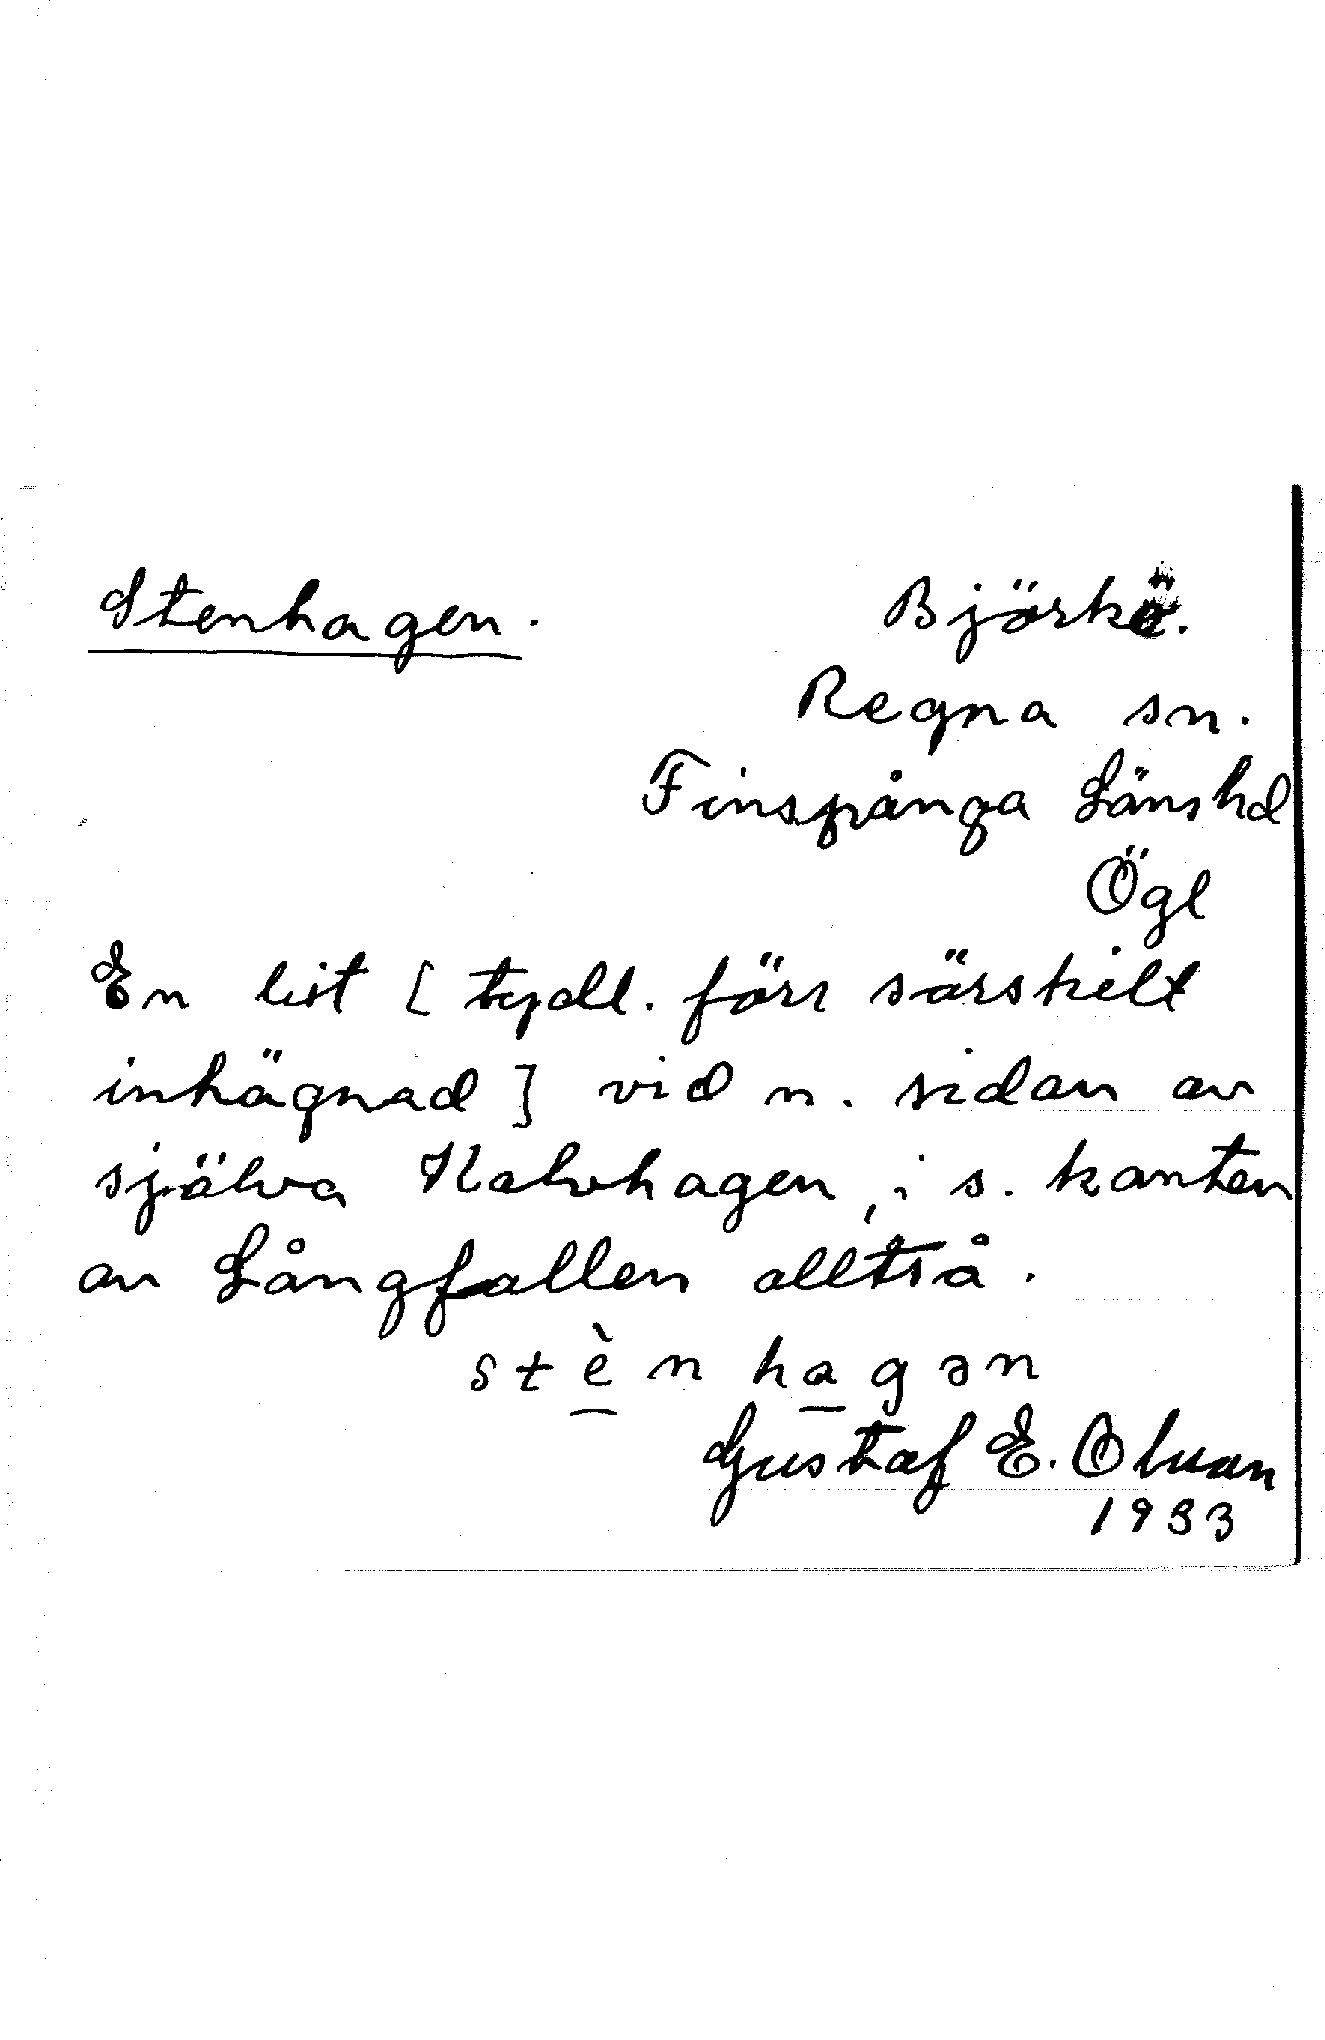 Stenhagen.
Björke.
Regna sn.
Finspånga Länshd
Ögl
En bit [ tydl. förr särskilt
inhägnad ] vid n. sidan av
själva Kalvhagen, i s. kanten
av Långfallen alltså.
stènhagən
Gustaf E. Olsson
1933